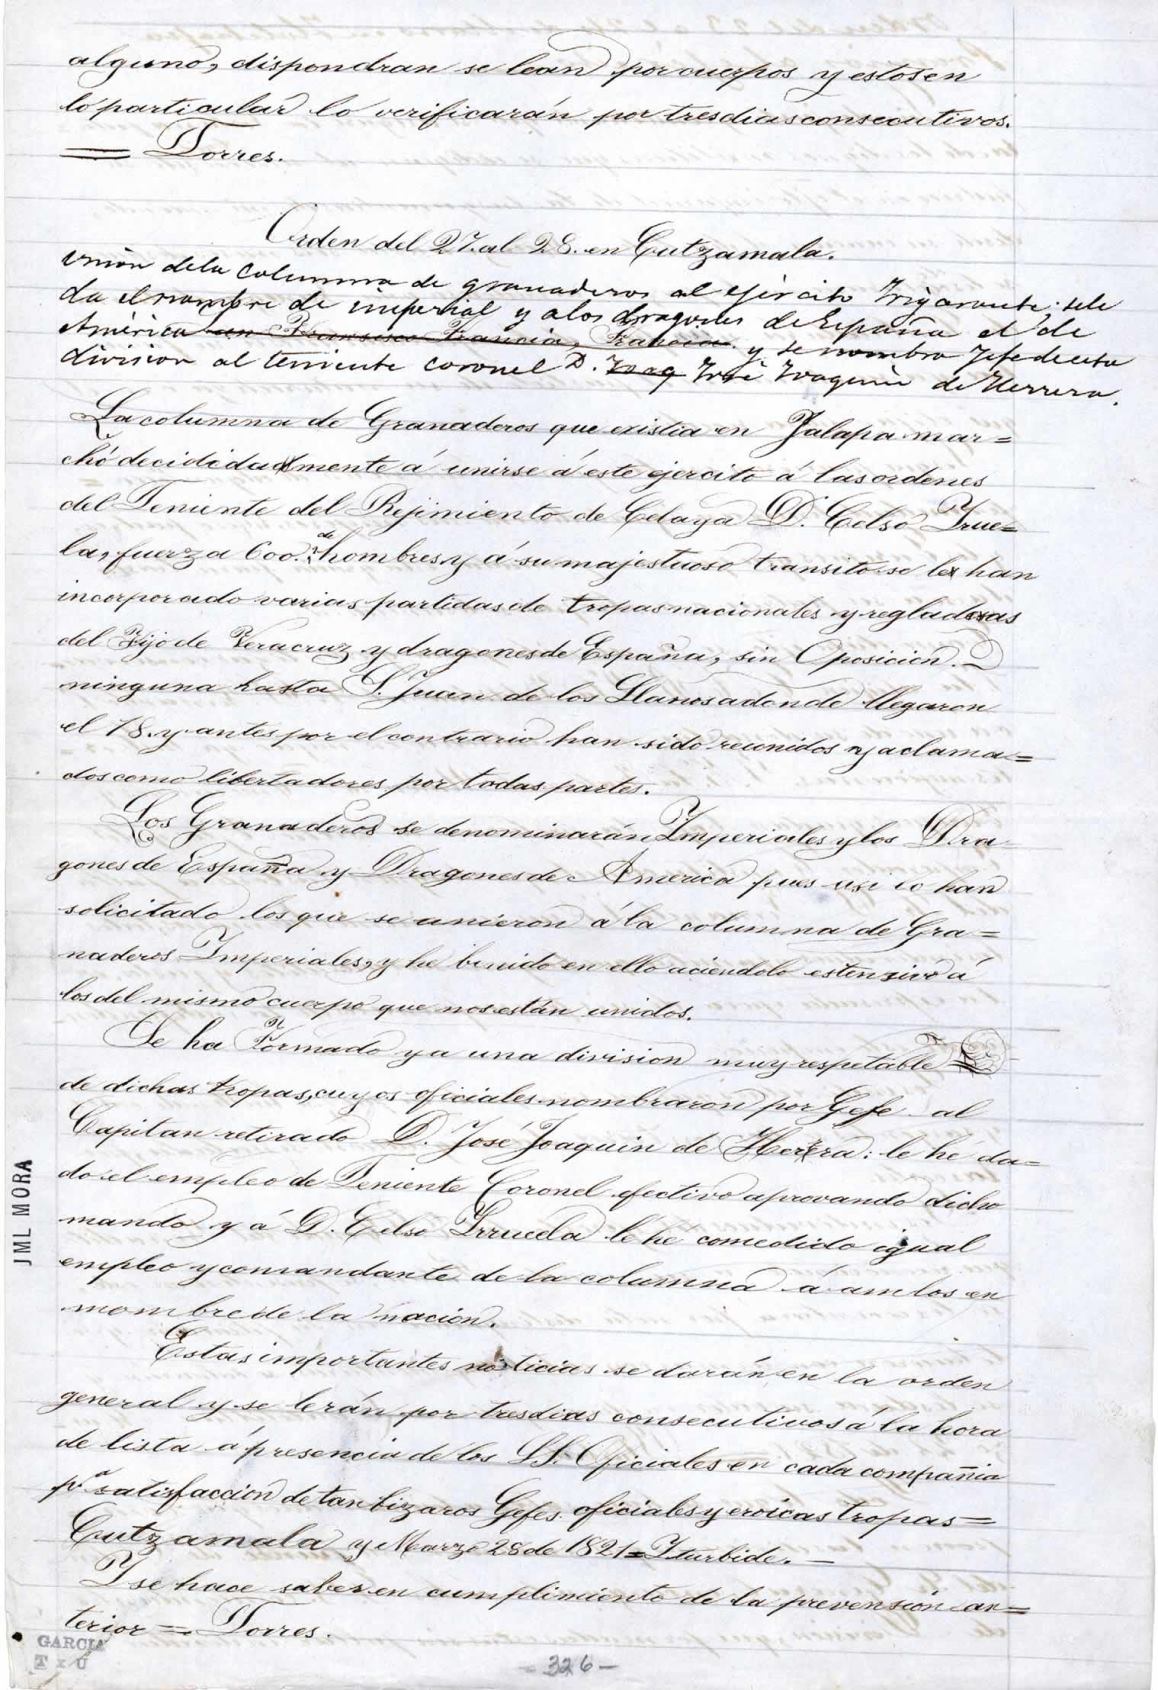 alguno, dispondran se lean por cuerpos y estos en
lo particular lo verificarán por tres dias consecutivos.
= Torres.
Orden del 27. al 28. en Cutzamala.
Unión de la Columna de granaderos al ejército Trigarante: se le
da el nombre de imperial y a los dragones de España el de
América en Fransisco Francia, Francia. y se nombra Jefe de esta
division al teniente coronel D. Joaq José Joaquin de Herrera.
La columna de Granaderos que existia en Jalapa mar=
chó decididadmente á unirse á este ejercito á las ordenes
del Teniente del Rejimiento de Celaya D. Celso Yrue=
la, fuerza 600. de hombres y á su majestuoso transito se les han
incorporado varias partidas de tropas nacionales y regladas
del Fijo de Veracruz y dragones de España, sin Oposicion
ninguna hasta S. Juan de los Llanos adonde llegaron
el 18. y antes por el contrario han sido reunidos y aclama=
dos como libertadores por todas partes.
Los Granaderos se denominarán Ymperiales y los Dra
gones de España y Dragones de America pues asi lo han
solicitado los que se unieron á la columna de Gra=
naderos Ymperiales, y he benido en ello aciendolo estensivo á
los del mismo cuerpo que nos están unidos.
Se ha Formado ya una division muy respetable
de dichas tropas, cuyos oficiales nombraron por Gefe al
Capitan retirado D. José Joaquin de Herrra: le hé da=
do el empleo de Teniente Coronel efectivo aprovando dicho
mando y á D. Celso Yrruela le hé comedido igual
empleo y comandante de la columna á amlos en
nombre de la nación.
Estas importantes noticias se darán en la orden
general y se lerán por tres dias consecutivos á la hora
de lista á presencia de los SS. Oficiales en cada compañia
pª satisfacción de tan bizaros Gefes oficiales y eroicas tropas=
Cutzamala y Marzo 28 de 1821=Yturbide.—
Y se hace saber en cumplimiento de la prevensión an=
terior = Torres.
- 326 -
JML MORA
GARCIA
T x U